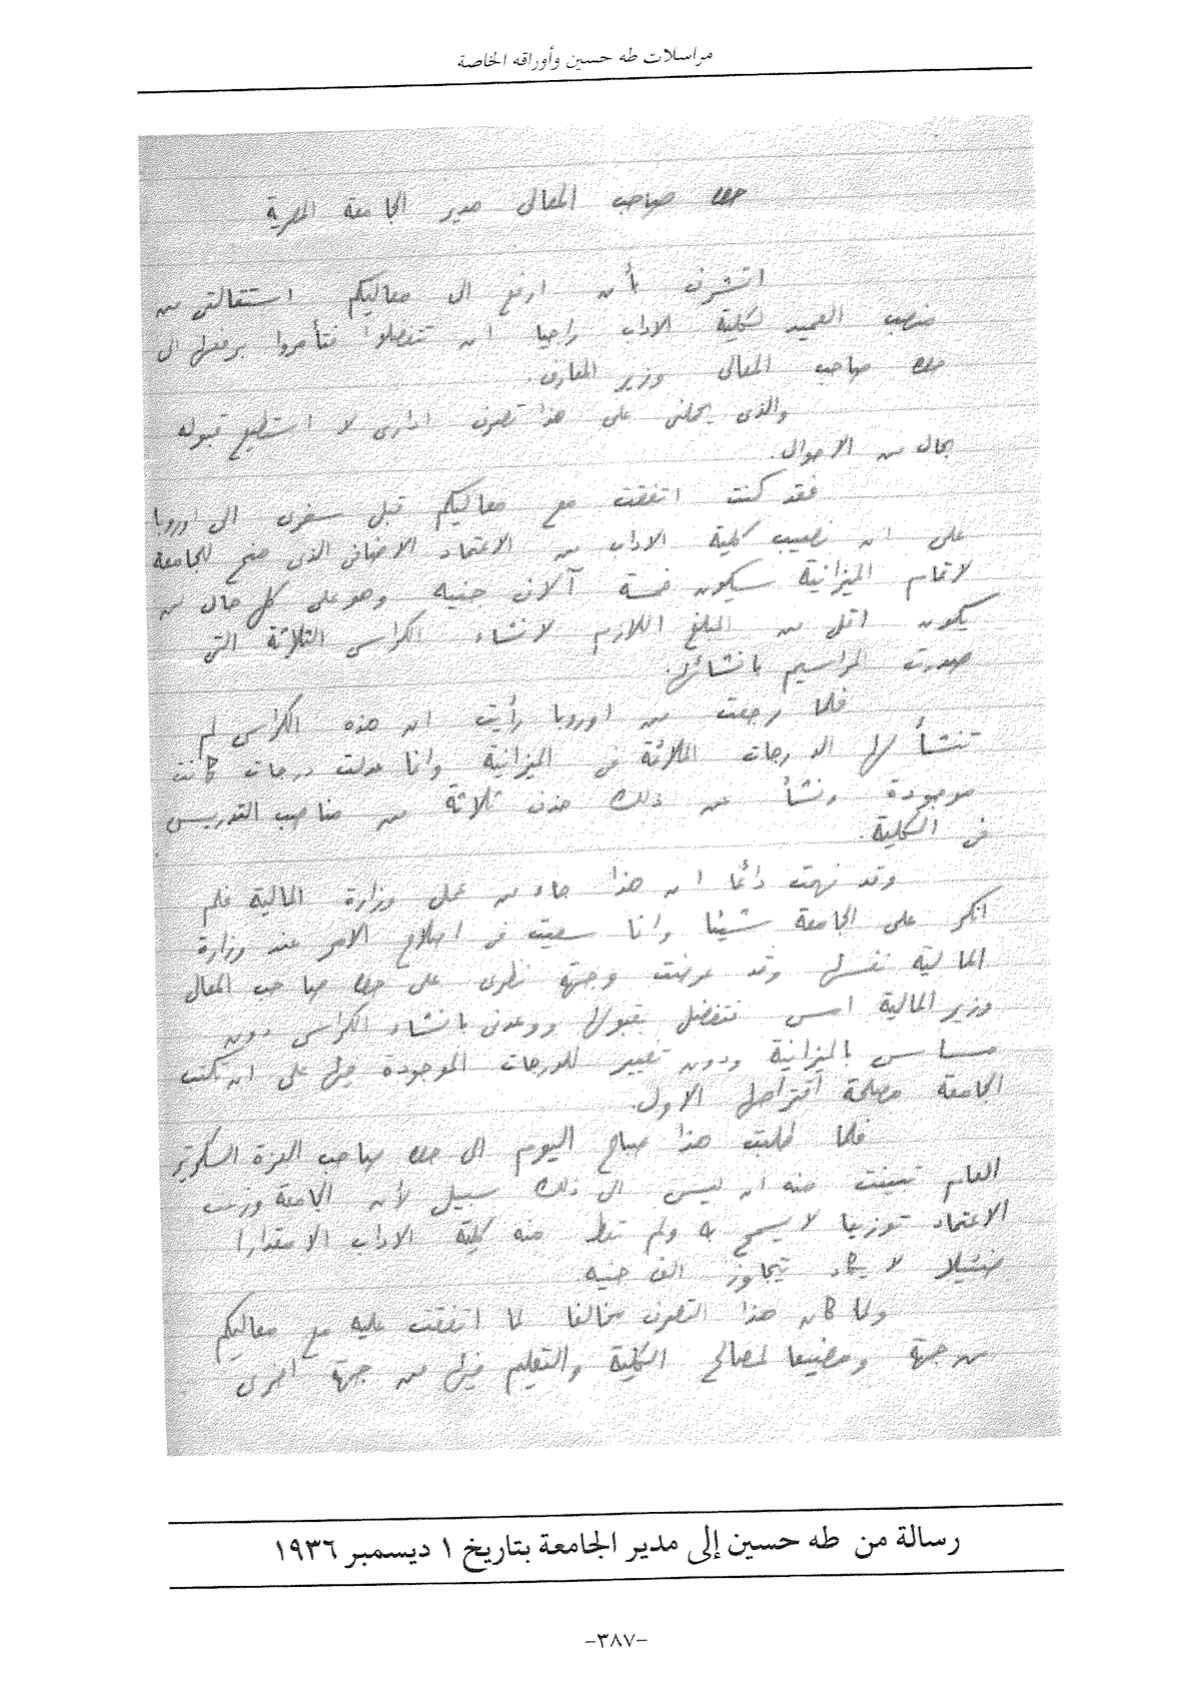 مراسلات طه حسين وأوراقه الخاصة
حضرة صاحب المعالى مدير الجامعة المصرية
اتشرف بأن ارفع الى معاليكم استقالتى من
منصب العميد لكلية الاداب راجيا ان تتفضلوا فتأمروا برفعها الى
حضرة صاحب المعالى وزير المعارف.
والذى يحملنى على هذا تصرف ادارى لا استطيع قبوله
بحال من الاحوال.
فقد كنت اتفقت مع معاليكم قبل سفرى الى اوروبا
على ان نصيب كلية الاداب من الاعتماد الاضافى الذى منح للجامعة
لاتمام الميزانية سيكون خمسة آلاف جنيه وهو على كل حال لن
يكون اقل من المبلغ اللازم لانشاء الكراسى الثلاثة التى
صدرت المراسيم بانشائها.
فلما رجعت من اوروبا رأيت ان هذه الكراسى لم
تنشأ لها الدرجات الملائمة فى الميزانية وانما عدلت درجات كانت
موجودة ونشأ عن ذلك حذف ثلاثة من مناصب التدريس
فى الكلية.
وقد فهمت دائما ان هذا جاء من عمل وزارة المالية فلم
انكر على الجامعة شيئا وانما سعيت فى اصلاح الامر عند وزارة
المالية نفسها وقد عرضت وجهة نظرى على حضرة صاحب المعالى
وزير المالية امس فتفضل بقبولها ووعدنى بانشاء الكراسى دون
مساس بالميزانية ودون تغيير للدرجات الموجودة فيها على ان تكتب
الجامعة مصلحة اقتراحها الاول.
فلما طلبت هذا صباح اليوم الى حضرة صاحب العزة السكرتير
العام تبينت منه ان ليس الى ذلك سبيل لأن الجامعة وزعت
الاعتماد توزيعا لا يسمح به ولم تعط منه كلية الاداب الا مقدارا
ضئيلا لا يكاد يتجاوز الف جنيه
ولما كان هذا التصرف مخالفا لما اتفقت عليه مع معاليكم
من جهة ومضيعا لمصالح الكلية والتعليم فيها من جهة اخرى
رسالة من طه حسين إلى مدير الجامعة بتاريخ ١ ديسمبر ١٩٣٦
-٣٨٧-